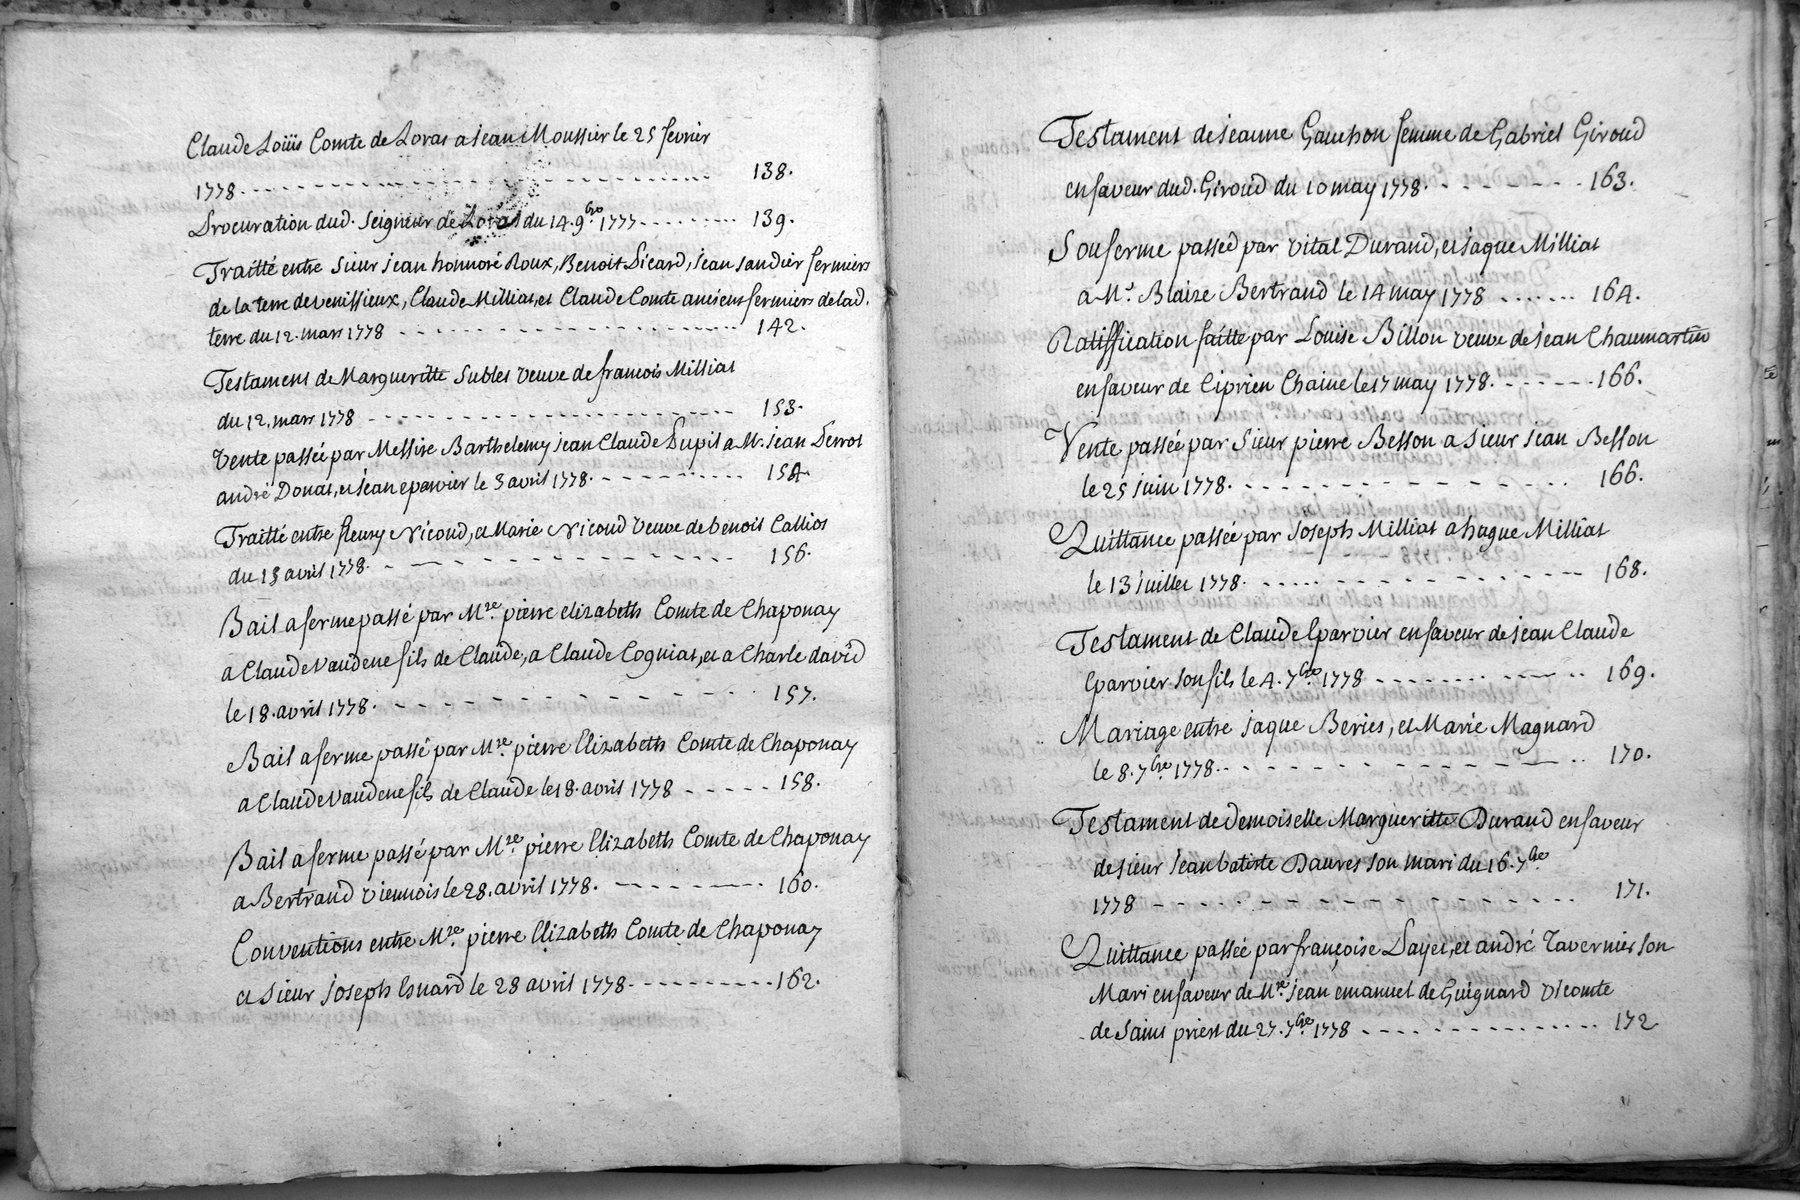 Claude Loüis Comte de Loras a jean Moussier le 25 fevrier
1778. 138.
Procuration dud. Seigneur de Loras du 14. 9bre 1777 139.
Traitté entre Sieur jean honnoré Roux, Benoit Picard, jean sandier fermiers
de la terre de venissieux, Claude Milliat, et Claude Comte anciens fermiers de lad.
terre du 12. mars 1778 142.
Testament de Margueritte Sublet veuve de francois Milliat
du 12. mars 1778 153.
Vente passée par Messire Barthelemy jean Claude Pupil a Mr. jean Perrot
andré Donat, et jean eparvier le 3 avril 1778. 154.
Traitté entre fleury Nicoud, et Marie Nicoud veuve de benoit Calliot
du 13 avril 1778. 156.
Bail a ferme passé par Mre. pierre elizabeth Comte de Chaponay
a Claude vaudene fils de Claude, a Claude Cogniat, et a Charle david
le 18. avril 1778. 157.
Bail a ferme passé par Mre. pierre Elizabeth Comte de Chaponay
a Claude vaudene fils de Claude le 18. avril 1778 158.
Bail a ferme passé par Mre. pierre Elizabeth Comte de Chaponay
a Bertrand viennois le 28. avril 1778. 160.
Conventions entre Mre. pierre Elizabeth Comte de Chaponay
et Sieur joseph Guard le 28 avril 1778 162.
Testament de jeanne Gauchon femme de Gabriel Giroud
en faveur dud. Giroud du 10 may 1778. 163.
Souferme passéd par vital Durand, et jaque Milliat
a Mr. Blaize Bertrand le 14 may 1778 164.
Ratiffication faitte par Louise Billon veuve de jean Chaumartin
en faveur de Ciprien Chaine le 17 may 1778. 166.
Vente passée par Sieur pierre Besson a Sieur jean Besson
le 25 juin 1778. 166.
Quittance passée par Joseph Milliat a haque Milliat
le 13 juillet 1778. 168.
Testament de Claude Eparvier en faveur de jean Claude
Eparvier son fils le 4. 7bre 1778 169.
Mariage entre jaque Beries, et Marie Magnard
le 8. 7bre 1778. 170.
Testament de demoiselle Margueritte Durand en faveur
de sieur Jean batiste Daures son mari du 16. 7bre
1778 171.
Quittance passée par françoise Payet, et andré Tavernier son
Mari en faveur de Mre jean emanuel de Guignard vicomte
de Saint priest du 27. 7bre 1778 172